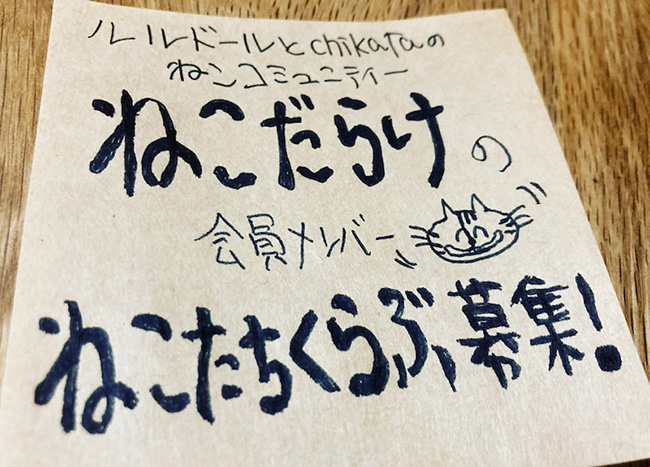 ルルドールとchikaraの
ねコミュニティー
ねこだらけの
会員メンバー
ねこたちくらぶ、募集!